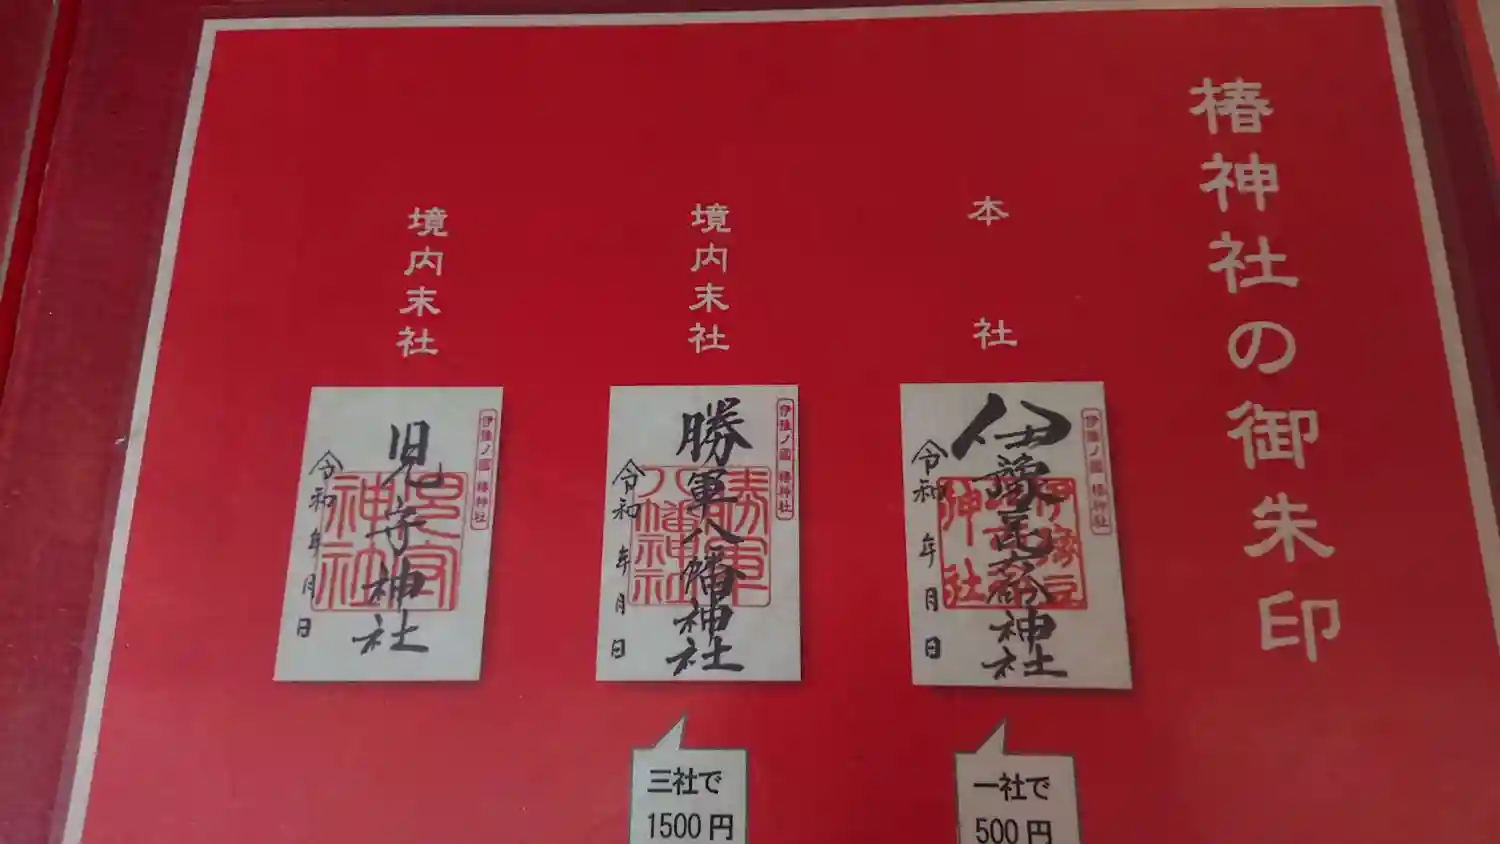 椿神社の御朱印
本社
伊豫豆比命神社
令和 年 月 日
伊豫ノ國 椿神社
一社で
500円
境内末社
勝軍八幡神社
令和 年 月 日
伊豫ノ國 椿神社
勝軍
八幡神社
三社で
1500円
境内末社
児守神社
令和 年 月 日
伊豫ノ國 椿神社
児守
神社